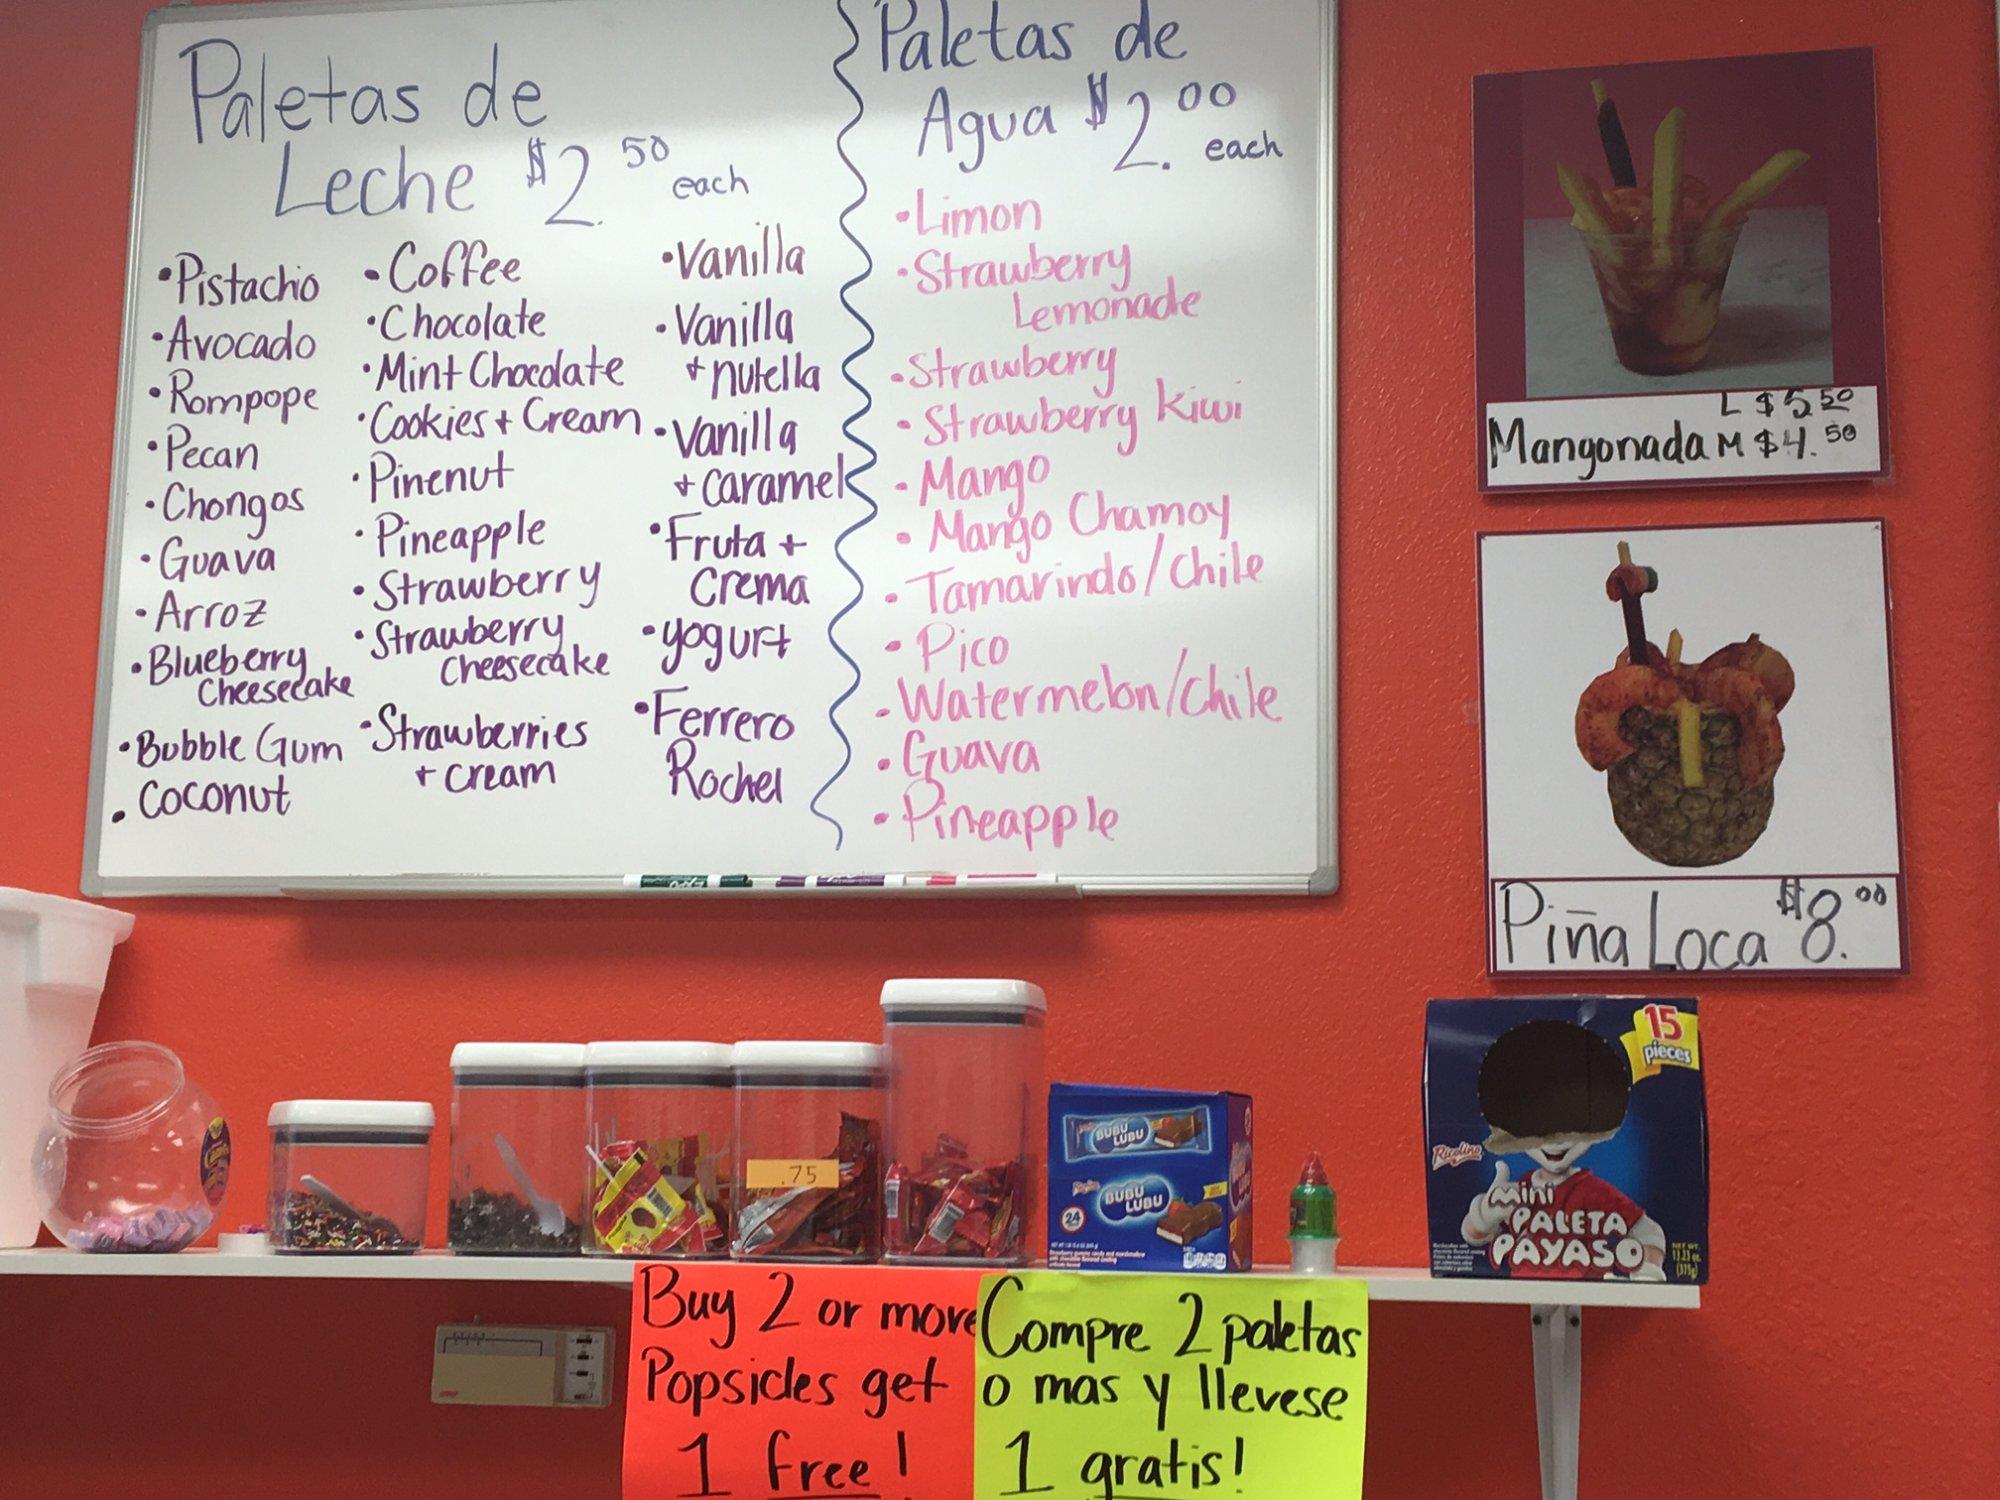 Paletas de
Leche $2.50 each
• Pistachio
• Avocado
• Rompope
• Pecan
• Chongos
• Guava
• Arroz
• Blueberry
Cheesecake
• Bubble Gum
• Coconut
• Coffee
• Chocolate
• Mint Chocolate
• Cookies + Cream
• Pinenut
• Pineapple
• Strawberry
• Strawberry
Cheesecake
• Strawberries
+ cream
• Vanilla
• Vanilla
+ nutella
• Vanilla
+ caramel
• Fruta +
Crema
• yogurt
• Ferrero
Rochel
Paletas de
Agua $2.00 each
• Limon
• Strawberry
Lemonade
• Strawberry
• Strawberry kiwi
• Mango
• Mango Chamoy
• Tamarindo/Chile
• Pico
• Watermelon/chile
• Guava
• Pineapple
L $5.50
Mangonada M $4.50
Piña Loca $8.00
.75
BUBU
LUBU
BUBU
LUBU
24
15
pieces
Ricolino
mini
PALETA
PAYASO
NET WT.
Buy 2 or more
Popsicles get
1 free!
Compre 2 paletas
o mas y llevese
1 gratis!